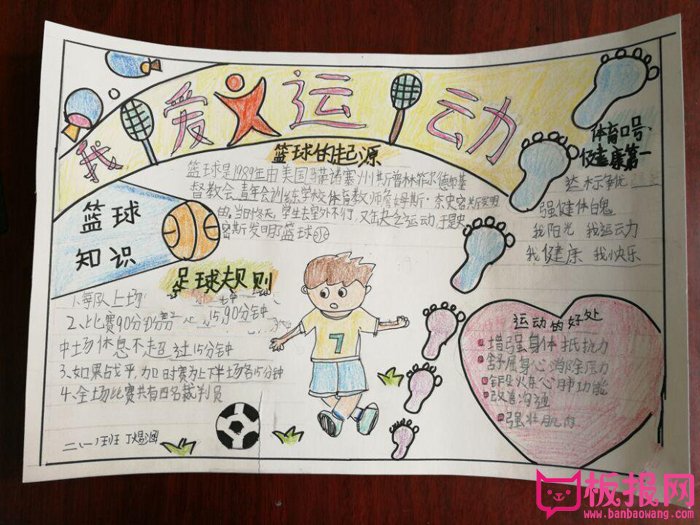 我爱运动
篮球的起源
篮球是1989年由美国马萨诸塞州斯普林菲尔德基
督教会青年会训练学校体育教师詹姆斯·奈史密斯发明
的。当时冬天,学生去室外不们,又缺乏运动,于是史
密斯发明了篮球
篮球
知识
足球规则
1、等队上场
2、比赛90分
15,90分钟
中场休息不超过15分钟
3、如果战平,加时赛为上下半场各15分钟
4、全场比赛共有四名裁判员
二、1班
体育口号
健康第一
达标争优
强健体魄
我阳光 我运动
我健康 我快乐
运动的好处
增强身体抵抗力
舒展身心消除压力
锻炼心肺功能
改善沟通
强壮肌肉
7
板报网
www.banbaowang.com